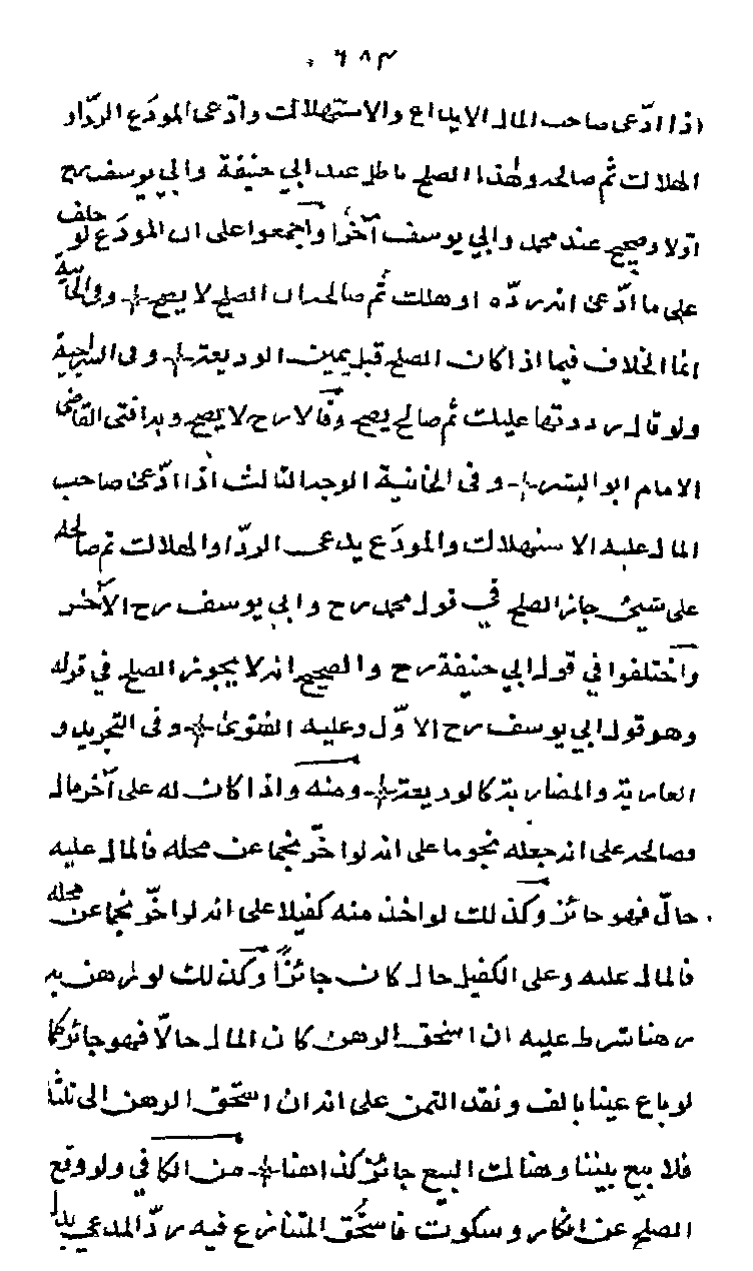 ٦٨٣
اذا ادّعى صاحب المال الايداع والاستهلاك وادّعى المودَع الردّ او
الهلاك ثم صالحه وهذا الصلح باطل عند ابي حنيفة وابي يوسف رح
اولا وصحيح عند محمد وابي يوسف آخرا واجمعوا على ان المودَع لو حلف
على ما ادّعى انه ردّه او هلك ثم صالحه ان الصلح لا يصح وفى الخانية
انما الخلاف فيما اذا كان الصلح قبل يمين الوديعة وفى السراجية
ولو قال رددتها عليك ثم صالح يصح وقالا رح لا يصح وبه افتى القاضى
الامام ابو اليسر وفى الخانية الوجه الثالث اذا ادّعى صاحب
المال عليه الاستهلاك والمودَع يدعى الردّ او الهلاك ثم صالحه
على شيئ جاز الصلح في قول محمد رح وابي يوسف رح الآخر
واختلفوا في قول ابي حنيفة رح والصحيح انه لا يجوز الصلح في قوله
وهو قول ابي يوسف رح الاوّل وعليه الفتوى وفى التجريد و
العارية والمضاربة كالوديعة ومنه واذا كان له على آخر مال
فصالحه على انه جعله نجوما على انه لو اخّر نجما عن محله فالمال عليه
حالّ فهو جائز وكذلك لو اخذ منه كفيلا على انه لو اخّر نجما عن محله
فالمال عليه وعلى الكفيل حال كان جائزًا وكذلك لو رهن به
رهنا شرط عليه ان استحق الرهن كان المال حالّا فهو جائز كما
لو باع عينا بالف ونقد الثمن على انه ان استحّق الرهن الى ثلثة
فلا بيع بيننا وهنالك البيع جائز كذا هنا من الكافي ولو وقع
الصلح عن انكار وسكوت فاستحّق المتنازع فيه ردّ المدعي بدل